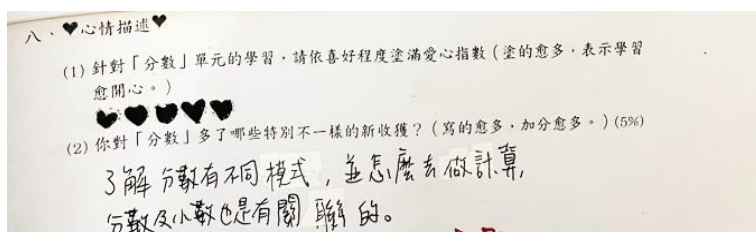 八、♥心情描述♥
(1) 針對「分數」單元的學習，請依喜好程度塗滿愛心指數（塗的愈多，表示學習
愈開心。）
♥♥♥♥♥
(2) 你對「分數」多了哪些特別不一樣的新收獲？（寫的愈多，加分愈多。）(5%)
了解分數有不同模式，並怎麼去做計算，
分數及小數也是有關聯的。